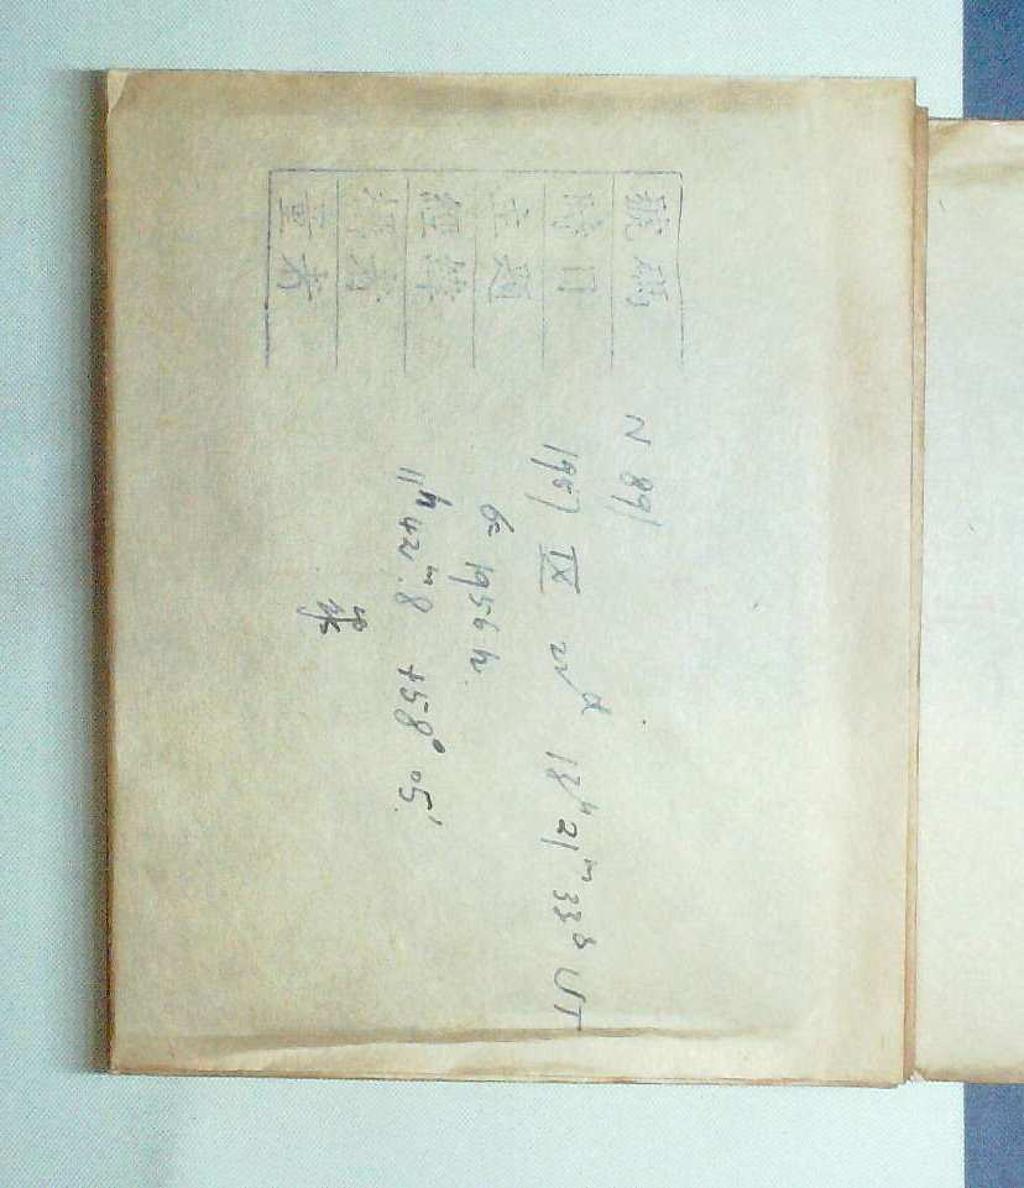 號碼 N 891
時日 1957 IX 22ᵈ 18ʰ 21ᵐ 33ˢ UT
主題 1956 h.
經緯 11ʰ 42ᵐ.8 +58° 05'
者
量者